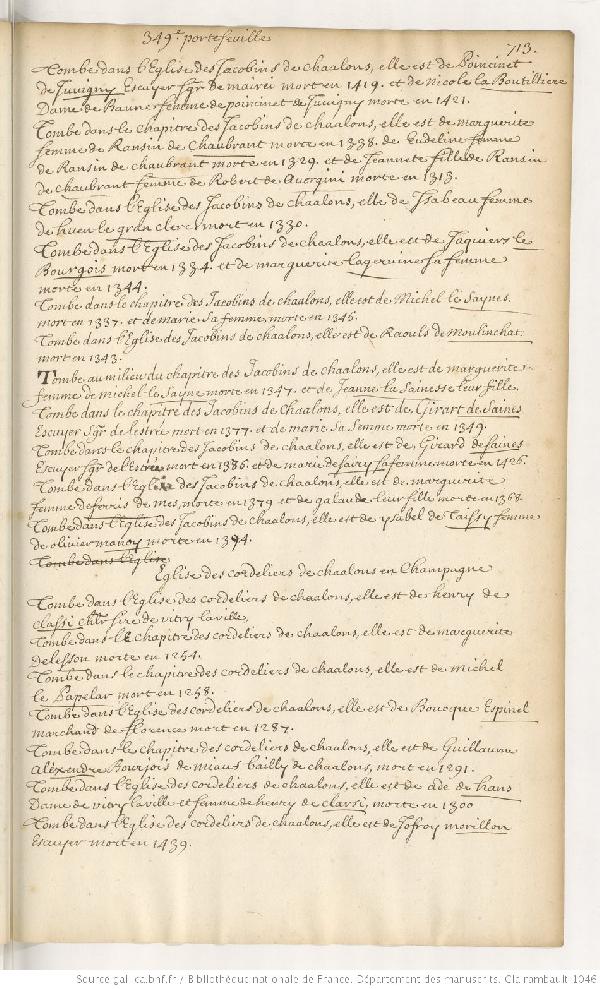 349.e portefeuille
713.
Tombe dans l'Eglise des Jacobins de chaalons, elle est de Poincinet
de Juvigny Escuyer sgr. de mairei mort en 1419. et de Nicole la Boutilliere
Dame de Bauner femme de poincinet de Juvigny morte en 1421.
Tombe dans le chapitre des Jacobins de chaalons, elle est de marguerite
femme de Ransin de Chaubrant morte en 1338. de Eudeline femme
de Ransin de chaubrant morte en 1329. et de Jeannete fille de Ransin
de chaubrant femme de Robert de Avergini morte en 1313.
Tombe dans l'Eglise des Jacobins de chaalons, elle de Isabeau femme
de huen le gran clerc mort en 1330.
Tombe dans l'Eglise des Jacobins de chaalons, elle est de Jaquiers le
Bourgois mort en 1334. et de marguerite sa femme
morte en 1344.
Tombe dans le chapitre des Jacobins de chaalons, elle est de Michel le Saynes
mort en 1337. et de marie sa femme morte en 1346.
Tombe dans l'Eglise des Jacobins de chaalons, elle est de Raouls de Moulinchat
mort en 1343.
Tombe au milieu du chapitre des Jacobins de chaalons, elle est de marguerite
femme de michel le Sayne morte en 1347. et de Jeanne la Sainesse leur fille
Tombe dans le chapitre des Jacobins de Chaalons, elle est de Girart de Saines
Escuyer Sgr. de lestrée mort en 1377. et de marie sa femme morte en 1349.
Tombe dans le chapitre des Jacobins de chaalons, elle est de Girard de Saines
Escuyer sgr de l'estrée mort en 1386. et de marie de sa femme morte en 1426.
Tombe dans l'Eglise des Jacobins de chaalons, elle est de marguerite
femme de forris de mes, morte en 1379 et de leur fille morte en 1368
Tombe dans l'Eglise des Jacobins de chaalons, elle est de ysabel de Taissy femme
de olivier manoy morte en 1394.
Tombe dans l'Eglise
Eglise des cordeliers de chaalons en Champagne
Tombe dans l'Eglise des cordeliers de chaalons, elle est de henry de
Classi chlr sire de vitry laville,
Tombe dans le chapitre des cordeliers de chaalons, elle est de marguerite
Delesson morte en 1254.
Tombe dans le chapitre des cordeliers de chaalons, elle est de Michel
le Papelar mort en 1258.
Tombe dans l'Eglise des cordeliers de chaalons, elle est de Boucque Espinel
marchand de florence mort en 1287.
Tombe dans le chapitre des cordeliers de chaalons, elle est de Guillaume
Alexendre Bourjois de miaus bailly de chaalons, mort en 1291.
Tombe dans l'Eglise des cordeliers de chaalons, elle est de Ade de hans
Dame de vitry laville et femme de henry de clarsi, morte en 1300
Tombe dans l'Eglise des cordeliers de chaalons, elle est de Jofroy morillon
Escuyer mort en 1439.
Source gallica.bnf.fr / Bibliothèque nationale de France. Département des manuscrits. Clairambault 1046